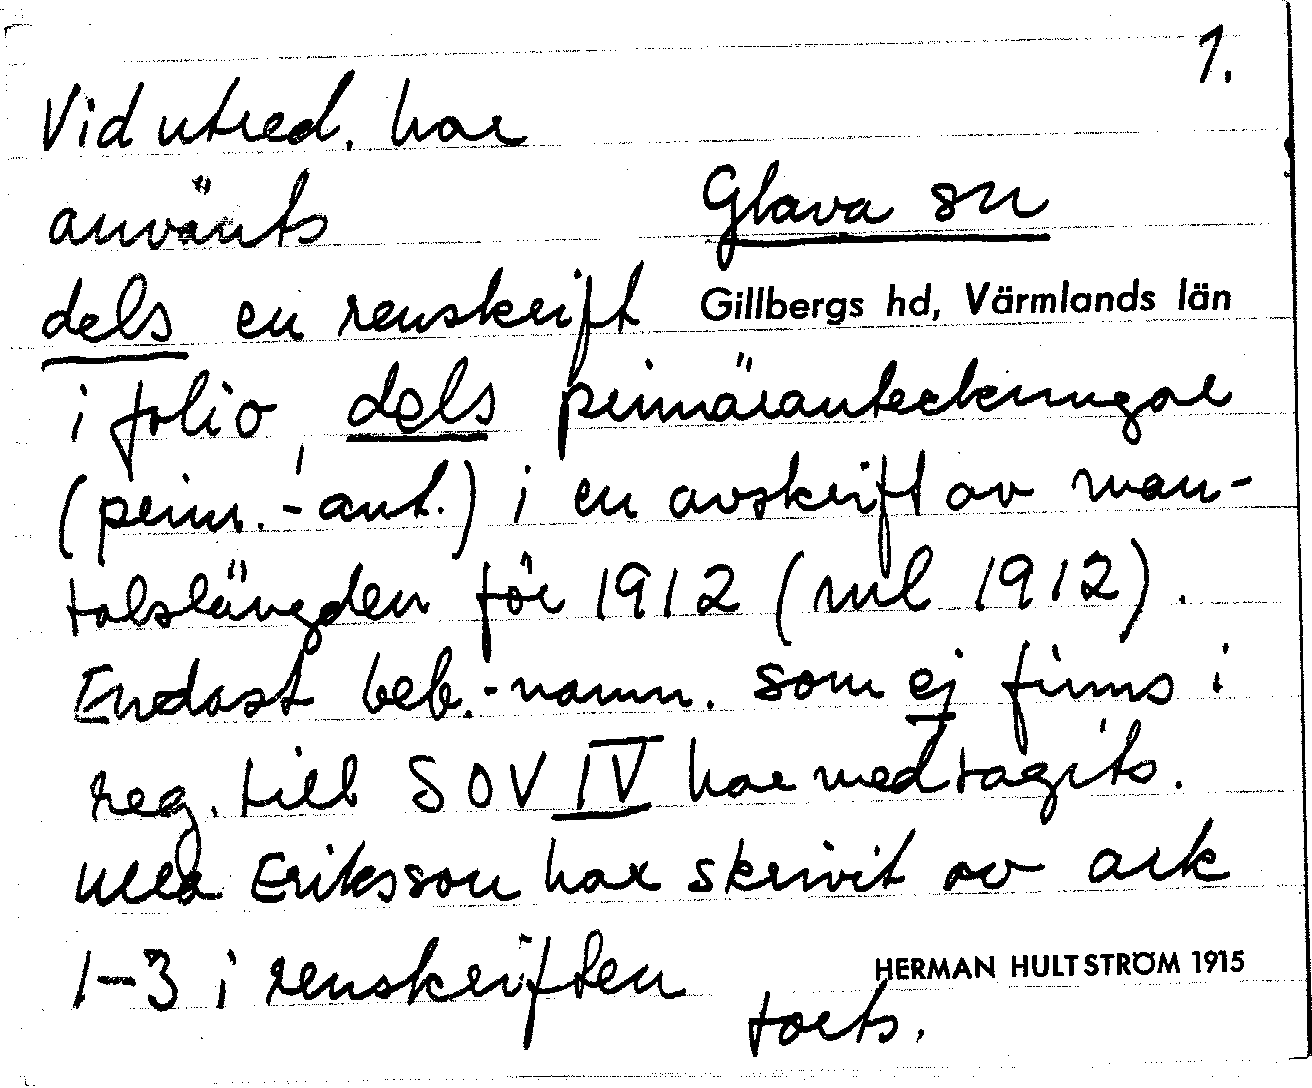 1.
Vid utred. har
använts
Glava sn
dels en renskrift
Gillbergs hd, Värmlands län
i folio, dels primäranteckningar
(prim.-ant.) i en avskrift av man-
talslängden för 1912 (ml 1912).
Endast beb.-namn. som ej finns i
reg. till SOV IV har medtagits.
Ulla Eriksson har skrivit av ark
1-3 i renskriften
HERMAN HULTSTRÖM 1915
forts.